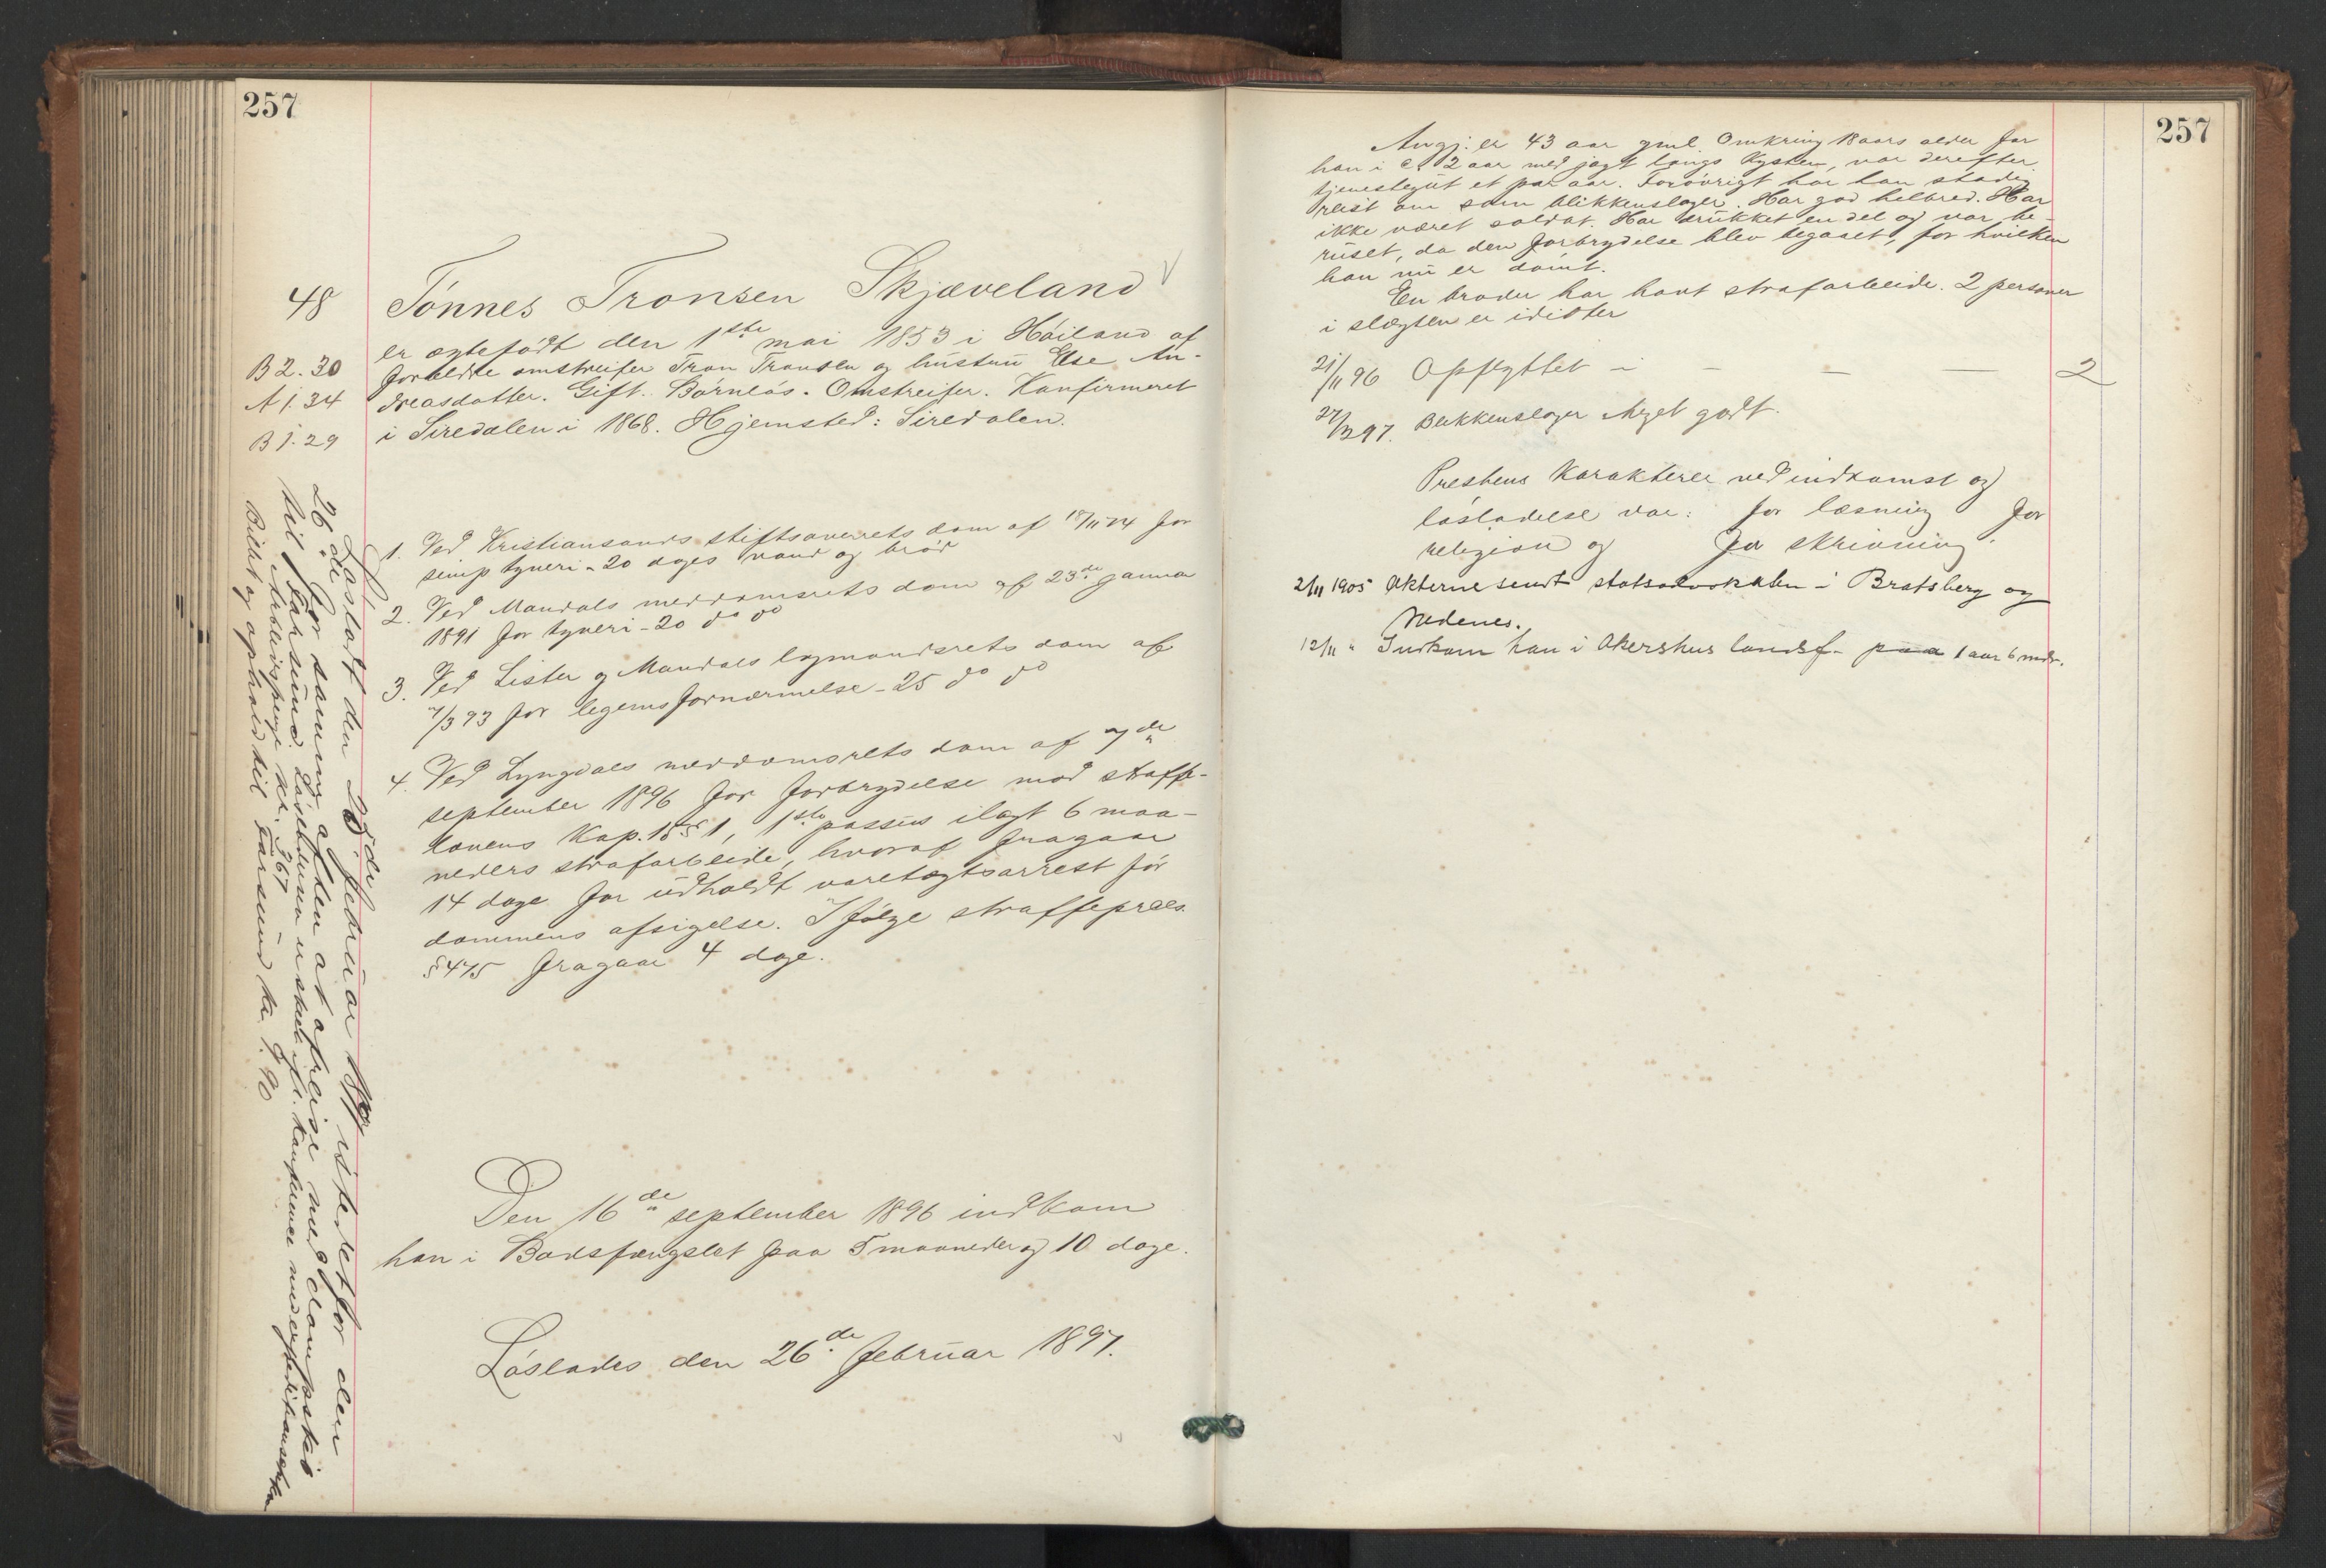 257
48
B 2. 30
A 1. 34
B 1. 29
Tönnes Tronsen Skjæveland
er ægtefödt den 1ste mai 1853 i Höiland af
forældre omstreifer Tron Tronsen og hustru Else An-
dreasdatter. Gift. Börnlös. Omstreifer. Konfirmeret
i Siredalen i 1868. Hjemsted: Siredalen.
1. Ved Kristiansands stiftsoverrets dom af 18/11 74 for
simp tyveri - 20 dages vand og bröd
2. Ved Mandals meddomsrets dom af 23de januar
1891 for tyveri - 20 do do
3. Ved Lister og Mandals lagmandsrets dom af
7/3 93 for legemsfornærmelse - 25 do do
4. Ved Lyngdals meddomsrets dom af 7de
september 1896 for forbrydelse mod straffe-
lovens Kap. 15 § 1, 1ste passus ilagt 6 maa-
neders strafarbeide, hvoraf fragaar
14 dage for udholdt varetægtsarrest för
dommens afsigelse. Ifölge straffeprces.
§ 475 fragaar 4 dage.
Den 16de september 1896 indkom
han i Bodsfængslet paa 5 maaneder og 10 dage.
Löslades den 26de februar 1897.
Lösladt den 25de februar 1897 istedetfor den
26de for samme aften at afreise med dampskib
til Farsund. Lösladelsen er skeet efter konference med ekspeditionschefen
Arbeidspenge kr. 3.67
Billet og ophold til Farsund kr.
257
Angj. er 43 aar gml. Omkring 18 aars alder for
han i ca 2 aar med jagt langs Kysten, var derefter
tjenestegut et par aar. Forövrigt har han stadig
reist om som blikkenslager. Har god helbred. Har
ikke været soldat. Har drukket en del og var be-
ruset, da den forbrydelse blev begaaet, for hvilken
han nu er dömt.
En broder har havt strafarbeide. 2 personer
i slægten er idioter
21/11 96 Opflyttet i — — — 2
27/2 97. Blikkenslager Meget godt.
Prestens Karakterer ved indkomst og
lösladelse var: for læsning for
religion og for skrivning.
2/11 1905 Akterne sendt statsadvokaten i Bratsberg og
Nedenes.
12/11 " Indkom han i Akershus landsf. paa 1 aar 6 mdr.